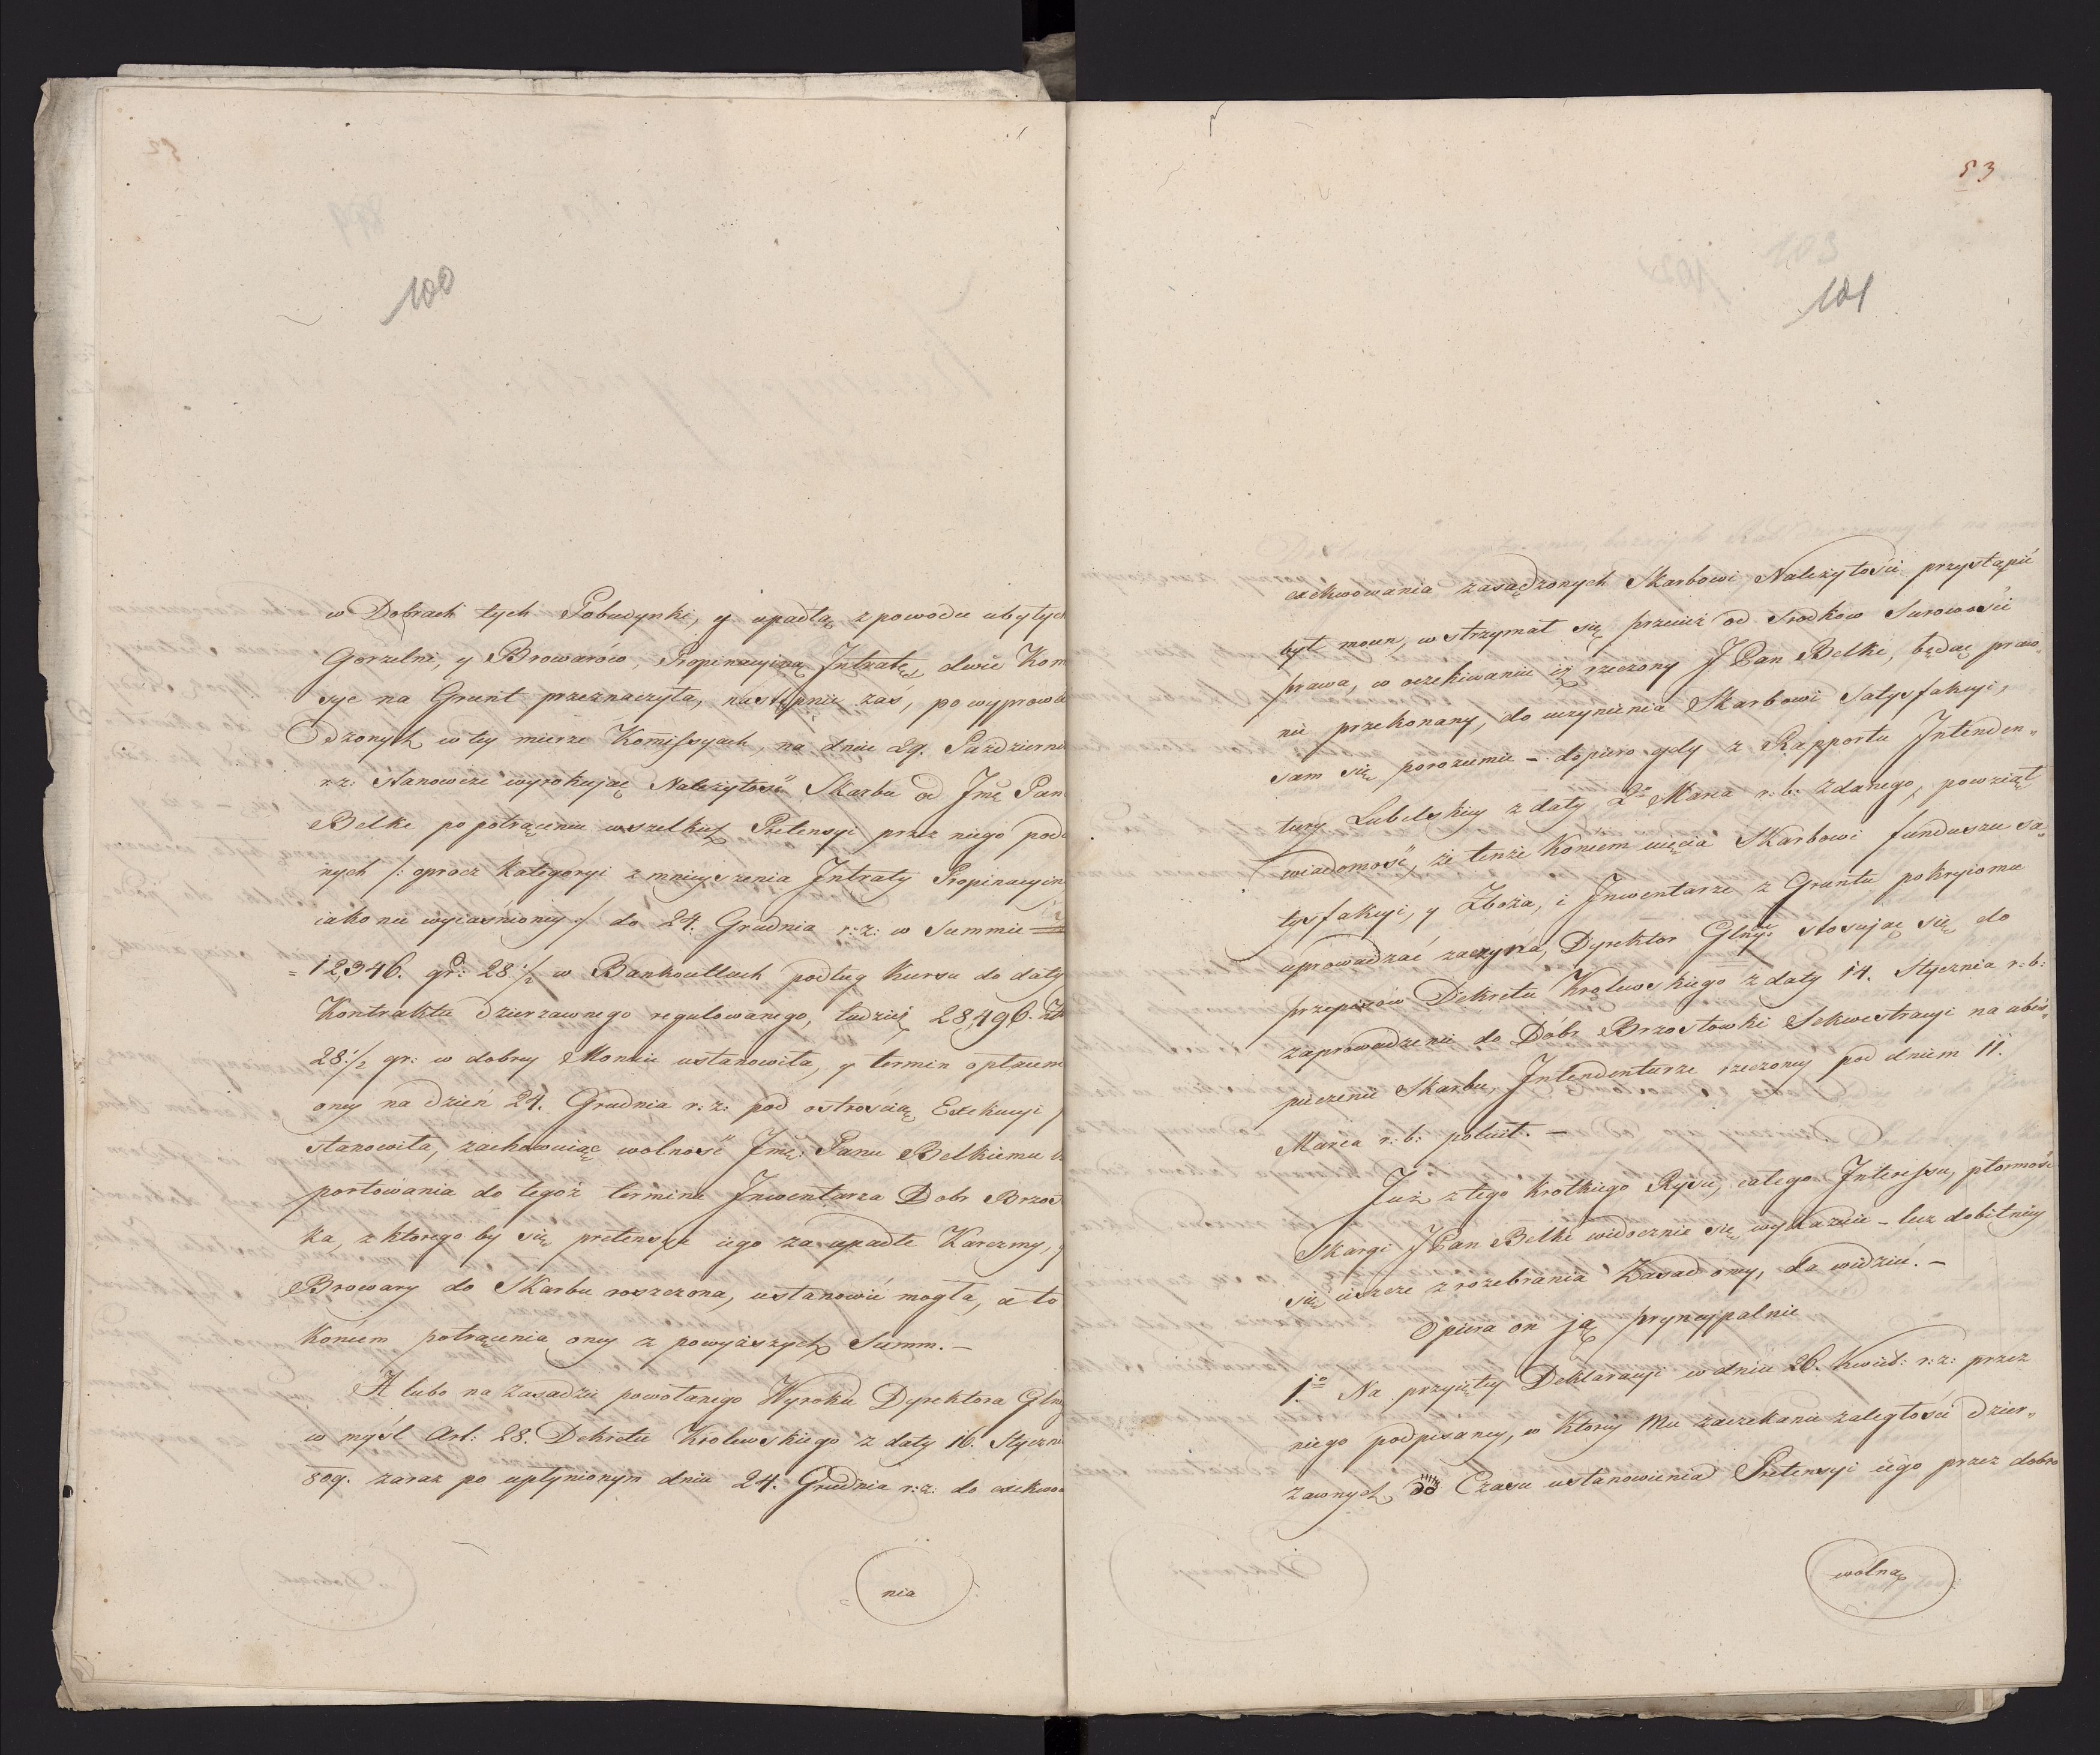 100
w Dobrach tych Pobudynki, y upadłą z powodu ubytych
Gorzelni, y Browarów, Propinacyiną Intratę, dwie Kom
sye na Grunt przeznaczyła, następnie zaś, po wyprowa
dzonych w tey mierze Komissyach, na dniu 29. Październi
r: z: stanowcze wyrokuiąc Należytość Skarbu od Jmć Pan
Belke po potrąceniu wszelkich Pretensyi przez niego pod
nych /: oprocz Kategoryi zmnieyszenia Intraty Propinacyin
iako nie wyiaśnioney :/ do 24. Grudnia r: z: w Summie
= 12,346. gr: 28 1/2 w Bankocetlach podług Kursu do daty
Kontraktu dzierzawnego regulowanego, tudzież 28,496. Zł
28 1/2 gr: w dobrey Monecie ustanowiła, y termin opłacen
oney na dzień 24. Grudnia r: z: pod ostrością Exekucyi
stanowiła, zachowuiąc wolność Jmć: Panu Belkiemu
portowania do tegoż terminu Inwentarza Dobr Brzos
ka, z ktorego by się pretensya iego za upadłe Karczmy, y
Browary do Skarbu roszczona, ustanowić mogła, a to
Koncem potrącenia oney z powyższych Summ. —
A lubo na Zasadzie powołanego Wyroku Dyrektora Glny
w myśl Art: 28. Dekretu Krolewskiego z daty 16. Styczn
809. zaraz po upłynionym dniu 24. Grudnia r: z: do exekwo
nia
53
103
102
101
exekwowania zasądzonych Skarbowi Należytości przystąpić
był mocen, wstrzymał się przecież od Srodków Surowości
prawa, w oczekiwaniu iż rzeczony JPan Belke, będąc praw„
nie przekonany, do uczynienia Skarbowi Satysfakcyi,
sam się porozumie – dopiero gdy z Rapportu Intenden„
tury Lubelskiey z daty 2o Marca r: b: zdanego, powziął
wiadomość, że tenże Koncem uięcia Skarbowi funduszu sa„
tysfakcyi, y Zboża, i Inwentarze z Gruntu pokryiomu
uprowadzać zaczyna, Dyrektor Glny: stosując się do
przepisów Dekretu Krolewskiego z daty 14. Stycznia r: b:
zaprowadzenie do Dóbr Brzostowki Sekwestracyi na abes„
pieczenie Skarbu, Intendenturze rzeczoney pod dniem 11.
Marca r: b: polecił. —
Już z tego krotkiego Rysu, całego Interessu, płonność
Skargi JPan Belke widocznie się wykazuie – lecz dobitniey
się ieszcze z rozebrania Zasad oney, da widzieć. —
Opiera on ją pryncypalnie
1o Na przyiętey Deklaracyi w dniu 26. Kwiet: r: z: przez
niego podpisaney, w ktorey Mu zaczekanie zaległości dzier„
zawnych do Czasu ustanowienia Pretensyi iego przez dobro
wolną